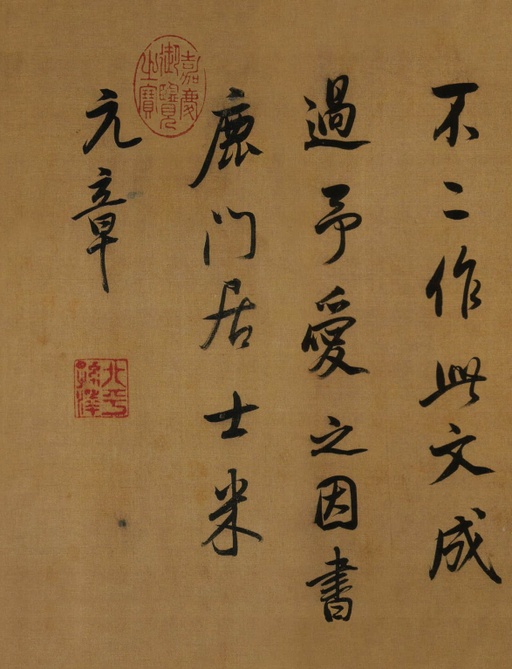 不二作此文成
過予愛之因書
鹿门居士米
元章
嘉慶御覽之寶
北平孫澤